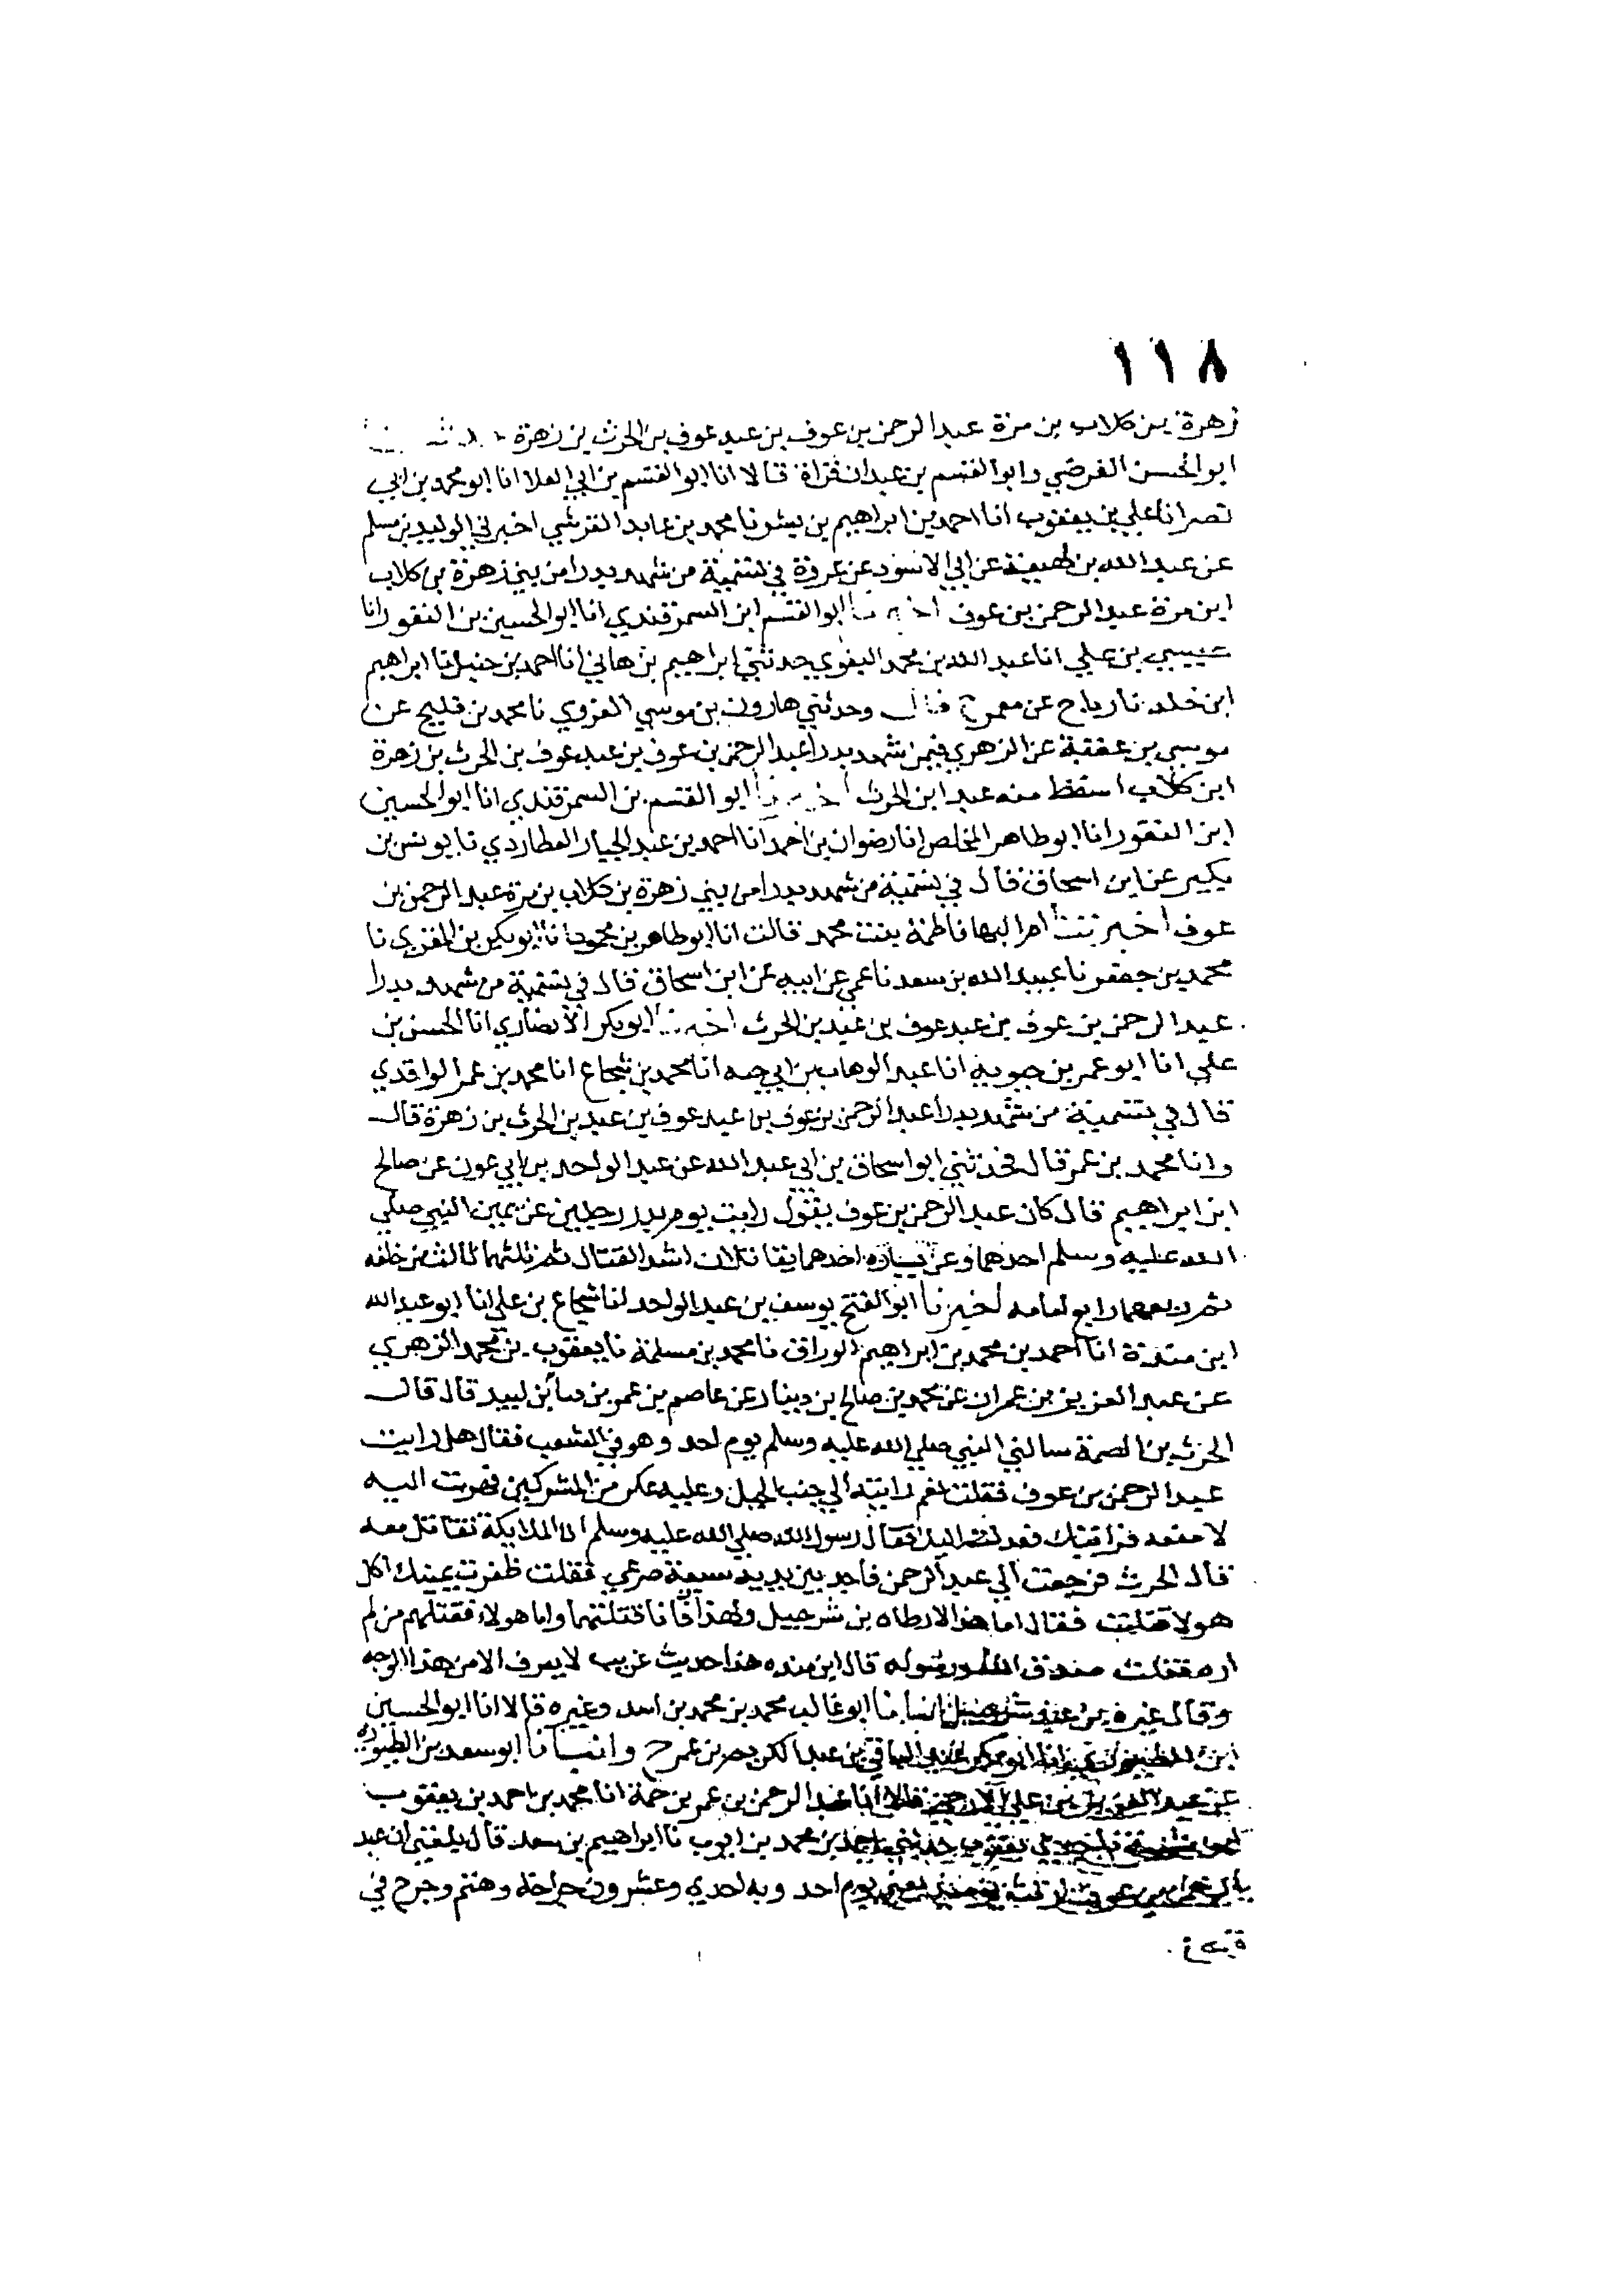 ١١٨
زهرة بن كلاب بن مرة عبد الرحمن بن عوف بن عبد عوف بن الحرث بن زهرة
ابو الحسن الفرضي وابو القسم بن عبدان قراة قالا انا ابو القسم بن ابي العلا انا ابو محمد بن ابي
نصر انا علي بن يعقوب انا احمد بن ابراهيم بن بشر نا محمد بن عابد القرشي اخبرني الوليد بن مسلم
عن عبد الله بن لهيعة عن ابي الاسود عن عروة في تسمية من شهد بدرا من بني زهرة بن كلاب
ابن مرة عبد الرحمن بن عوف اخبرنا ابو القسم ابن السمرقندي انا ابو الحسين بن النقور انا
عيسي بن علي انا عبد الله بن محمد البغوي حدثني ابراهيم بن هاني انا احمد بن حنبل نا ابراهيم
ابن خلد نا رباح عن معمر ح قال وحدثني هارون بن موسي الفروي نا محمد بن فليح عن
موسي بن عقبة عن الزهري فيمن شهد بدرا عبد الرحمن بن عوف بن عبد عوف بن الحرث بن زهرة
ابن كلاب اسقط منه عبد ابن الحرث اخبرنا ابو القسم بن السمرقندي انا ابو الحسين
ابن النقور انا ابو طاهر المخلص انا رضوان بن احمد انا احمد بن عبد الجبار العطاردي نا يونس بن
بكير عن ابن اسحاق قال في تسمية من شهد بدرا من بني زهرة بن كلاب بن مرة عبد الرحمن بن
عوف اخبرتنا ام البها فاطمة بنت محمد قالت انا ابو طاهر بن محمود انا ابو بكر بن المقري نا
محمد بن جعفر نا عبيد الله بن سعد نا عمي عن ابيه عن ابن اسحاق قال في تسمية من شهد بدرا
عبد الرحمن بن عوف بن عبد عوف بن عبد بن الحرث اخبرنا ابو بكر الانصاري انا الحسن بن
علي انا ابو عمر بن حيويه انا عبد الوهاب بن ابي حيه انا محمد بن شجاع انا محمد بن عمر الواقدي
قال في تسمية من شهد بدرا عبد الرحمن بن عوف بن عبد عوف بن عبد بن الحرث بن زهرة قال
وانا محمد بن عمر قال فحدثني ابو اسحاق بن ابي عبد الله عن عبد الواحد بن ابي عون عن صالح
ابن ابراهيم قال كان عبد الرحمن بن عوف يقول رايت يوم بدر رجلين عن يمين النبي صلي
الله عليه وسلم احدهما وعن يساره احدهما يقاتلان اشد القتال ثم ثلثهما ثالث من خلفه
ثم ربعهما رابع امامه اخبرنا ابو الفتح يوسف بن عبد الواحد انا شجاع بن علي انا ابو عبد الله
ابن مندة انا احمد بن محمد بن ابراهيم الوراق نا محمد بن مسلمة نا يعقوب بن محمد الزهري
عن عبد العزيز بن عمران عن محمد بن صالح بن دينار عن عاصم بن عمر بن لبيد قال قال
الحرث بن الصمة سالني النبي صلي الله عليه وسلم يوم احد وهو في الشعب فقال هل رايت
عبد الرحمن بن عوف فقلت نعم رايته الي جنب الجبل وعليه عكر من المشركين فهويت اليه
لامنعه فرايتك فعدلت اليك فقال رسول الله صلي الله عليه وسلم ان الملايكة تقاتل معه
قال الحرث فرجعت الي عبد الرحمن فاجد بين يديه سبعة صرعي فقلت ظفرت يمينك اكل
هولا قتلت فقال اما هذا الارطاه بن شرحبيل وهذا فانا قتلتهما واما هولاء فقتلهم من لم
اره فقلت صدق الله ورسوله قال ابن منده هذا حديث غريب لا يعرف الا من هذا الوجه
وقال غيره انبانا ابو غالب محمد بن محمد بن اسد وغيره قالا انا ابو الحسين
ابن عبد الباقي بن عبد الكريم بن عمر ح وانبانا ابو سعد بن الطيوري
عن عبد العزيز بن علي الازجي قالا انا عبد الرحمن بن عمر بن حمة انا محمد بن احمد بن يعقوب
يعقوب حدثني احمد بن محمد بن ايوب نا ابراهيم بن سعد قال بلغني ان عبد
الرحمن بن عوف يوم احد وبه احدي وعشرون جراحة وهتم وجرح في